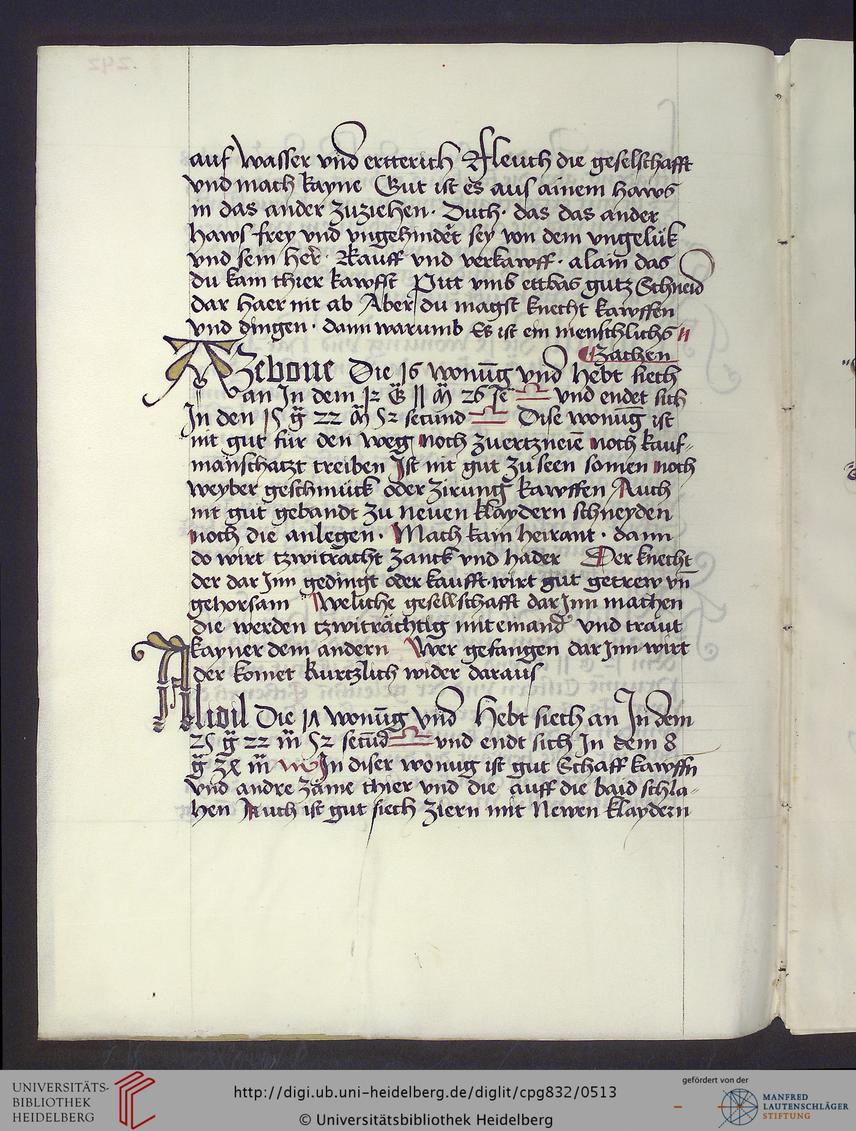 auf Wasser vnd ertterich Fleuch die geselschafft
vnd mach kayne Gut ist es aus ainem haws
in das ander zuziehen · Duch · das das ander
haws frey vnd vngehindert sey von dem vngelük
vnd sein her · Kauff vnd verkawff · alain das
du kain thier kawfft Pitt vmb ettbas gutz Schneid
dar haer nit ab Aber du magst knecht kawffen
vnd dingen · dann warumb Es ist ein menschlichs
Sachen
Azebone Die 16 wonūg vnd hebt siech
an In dem 12 G 11 M 26 se ♎ vnd endet sich
In den 15 g 22 M 52 secund ♎ Dise wonūg ist
nit gut für den weg noch zuertzneiē noch kauf-
manschatzt treiben Ist nit gut zu seen somen noch
weyber geschmück oder zirung kawffen Auch
nit gut gebandt zu neuen klaydern schneyden
noch die anlegen · Mach kain heirant · dann
do wirt tzwitracht zanck vnd hader Der knecht
der dar Inn gedingt oder kaufft wirt gut getrew vn̄
gehorsam Weliche gesellschafft dar Inn machen
die werden tzwiträchtig mit emand vnd traut
kayner dem andern Wer gefangen dar Inn wirt
der komet kurtzlich wider daraus
Alioil Die 17 wonūg vnd Hebt siech an In dem
25 g 22 m̄ 52 secūd ♎ vnd endt sich In dem 8
g m̄ ♏ In diser wonūg ist gut Schaff kawffn
vnd andre zäme thier vnd die auff die baid schla-
hen Auch ist gut siech ziern mit Newen klaydern
UNIVERSITÄTS-
BIBLIOTHEK
HEIDELBERG
http://digi.ub.uni-heidelberg.de/diglit/cpg832/0513
© Universitätsbibliothek Heidelberg
gefördert von der
MANFRED
LAUTENSCHLÄGER
STIFTUNG